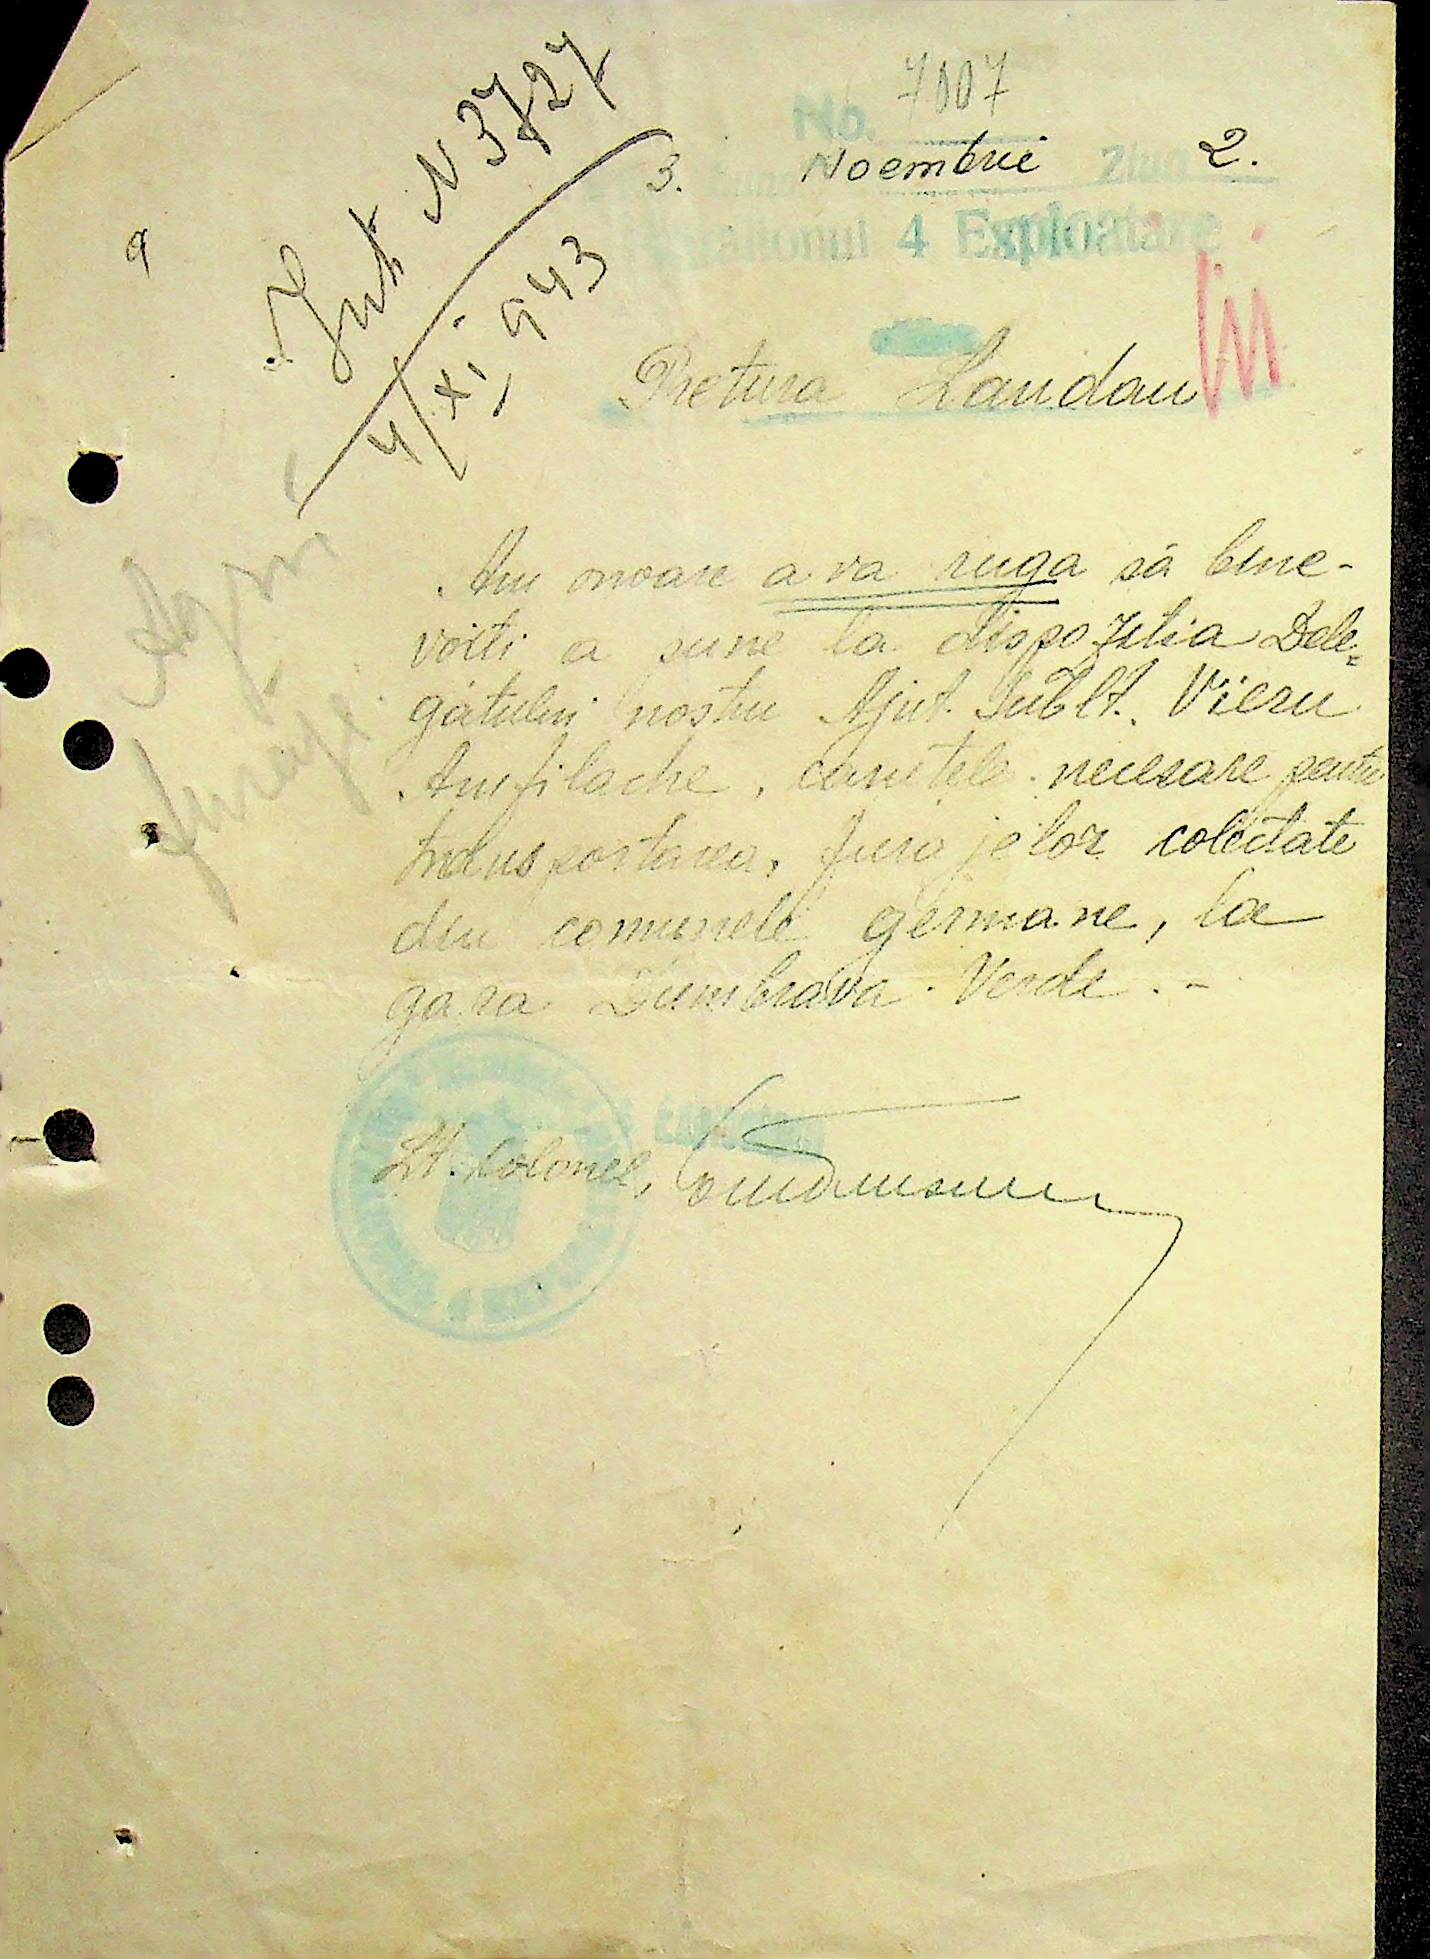 No. 7007
3. Noembrie Ziua 2.
Batalionul 4 Exploatare
Int N 3727
4/XI 943
9
Pretura Landau
Agric
furaje
Am onoare a va ruga să bine-
voiti a pune la dispozitia Dele=
gatului nostru Ajut. Sublt. Vieru
Amfilache, carutele necesare pentru
transportarea, furajelor colectate
din comunele germane, la
gara Dumbrava Verde. -
Lt. Colonel,